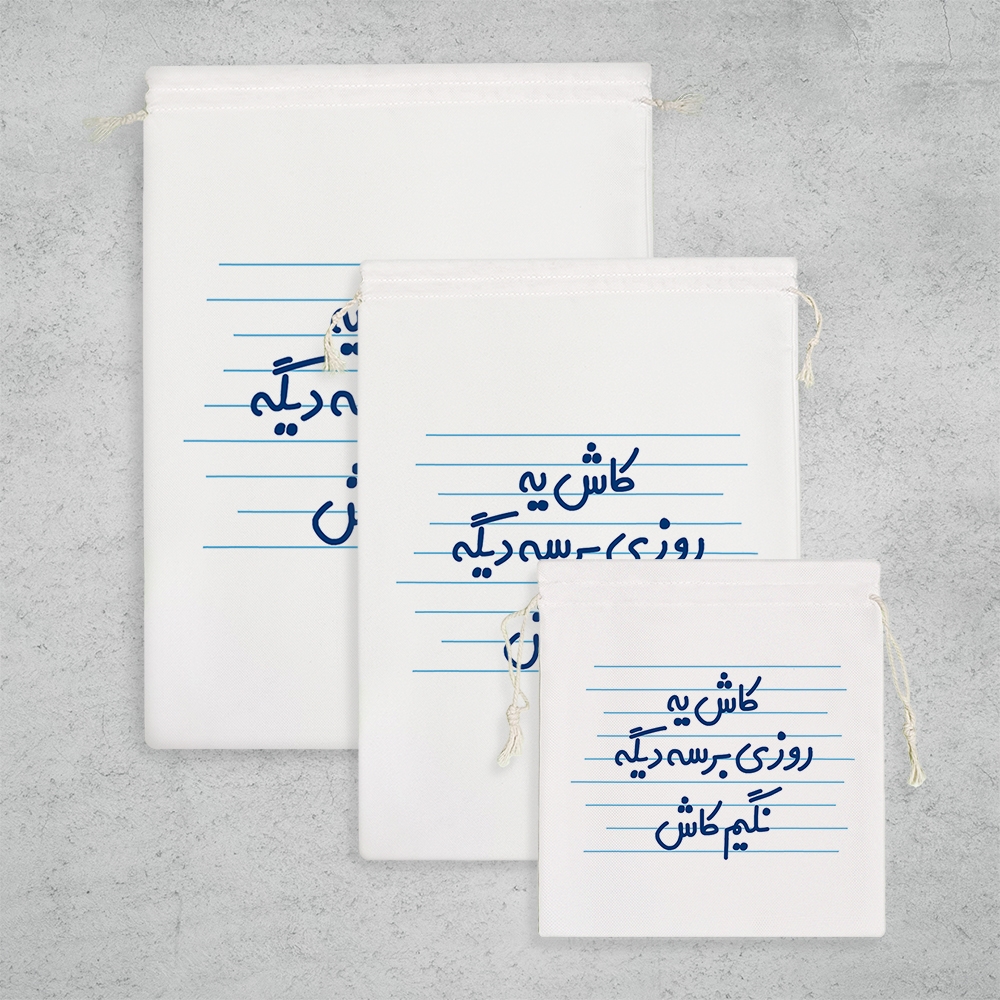 یه
ه دیگه
ش
کاش یه
روزی برسه دیگه
ش
کاش یه
روزی برسه دیگه
نگیم کاش